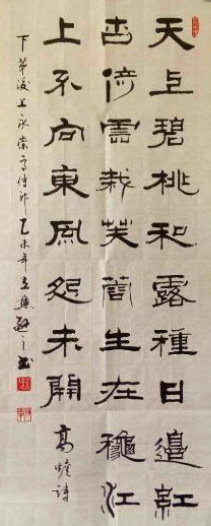 天上碧桃和露種日邊紅
杏倚雲栽芙蓉生在穐江
上不向東風怨未開 高蟾詩
下第後上永崇高侍郎 乙未年 之書